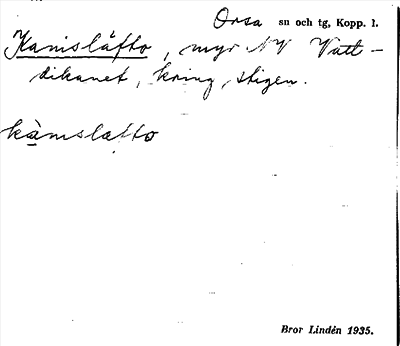 Orsa sn och tg, Kopp. l.
Kamslåtto, myr NV Vatt-
dikanet, kring stigen.
kàmslatto
Bror Lindén 1935.